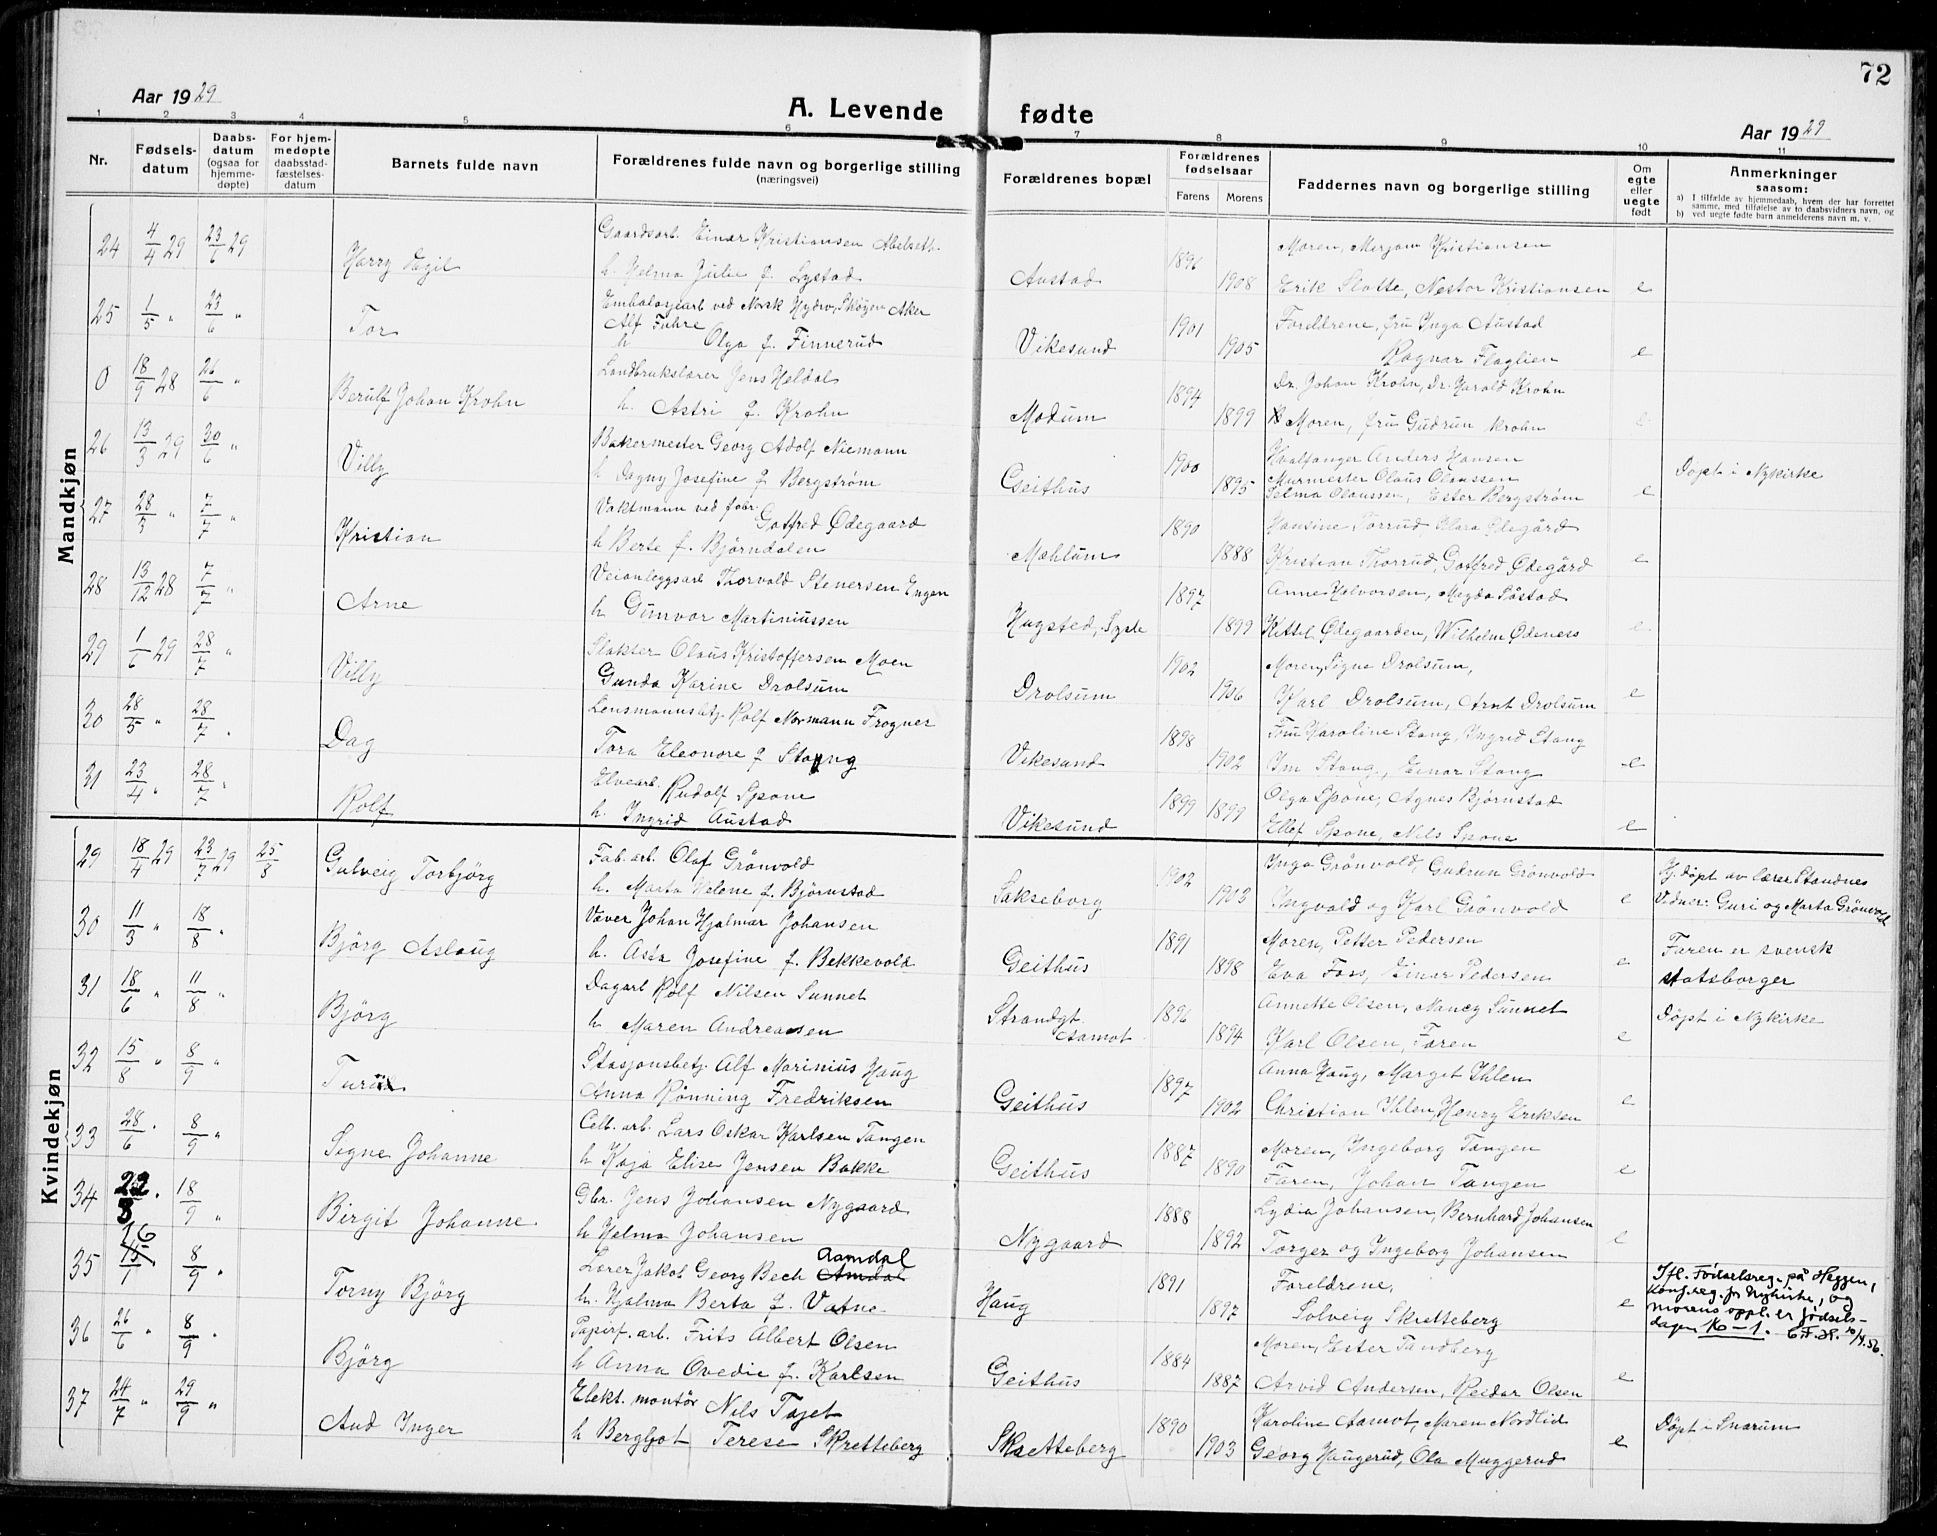 72
Aar 1929
A. Levende fødte
Aar 1929
1 2 3 4 5 6 7 8 9 10 11
Nr.
Fødsels-
datum
Daabs-
datum
(ogsaa for
hjemme-
døpte)
For hjem-
medøpte
daabsstad-
fæstelses-
datum
Barnets fulde navn
Forældrenes fulde navn og borgerlige stilling
(næringsvei)
Forældrenes bopæl
Forældrenes
fødselsaar
Farens Morens
Faddernes navn og borgerlige stilling
Om
egte
eller
uegte
født
Anmerkninger
saasom:
a) I tilfælde av hjemmedaab, hvem der har forrettet
samme, med tilføielse av to daabsvidners navn, og
b) ved uegte fødte barn anmelderens navn m. v.
Mandkjøn
24 4/4 29 23/6 29 Harry Egil
Gaardsarb. Einar Kristiansen Abelseth
h. Helma Julie f. Lystad
Austad 1896 1908
Moren, Mirjam Kristiansen
Erik Slatte, Nestor Kristiansen e
25 1/5 " 23/6 " Tor
Embalagearb ved Norsk Hydro, Skøyen Aker
Alf Fuhre
h Olga f. Finnerud
Vikesund 1901 1905
Foreldrene, fru Inga Austad
Ragnar Flaglien e
0 18/9 28 26/6 " Berulf Johan Krohn
Landbrukslærer Jens Heldal
h. Astri f. Krohn
Modum 1894 1899
Dr. Johan Krohn, Dr. Harald Krohn
Moren, fru Gudrun Krohn e
26 13/3 29 30/6 " Villy
Bakermester Georg Adolf Niemann
h Dagny Josefine f Bergstrøm
Geithus 1900 1895
Hvalfanger Anders Hansen
Murmester Olaus Olaussen
Selma Olaussen, Ester Bergstrøm e
Døpt i Nykirke
27 28/3 " 7/7 " Kristian
Vaktmann ved fabr. Gotfred Ødegaard
h Berte f. Bjørndalen
Mæhlum 1890 1888
Hansine Torrud, Klara Ødegård
Kristian Thorrud, Gotfred Ødegård e
28 13/12 28 7/7 " Arne
Veianleggsarb Thorvald Stenersen Engen
h Gunvor Martiniussen
Hagsted, Sysle 1897 1899
Anne Halvorsen, Magda Såstad
Kittel Ødegaarden, Wilhelm Ødeness e
29 1/6 29 28/7 " Villy
Slakter Olaus Kristoffersen Moen
Gunda Karine Drolsum
Drolsum 1902 1906
Moren, Signe Drolsum,
Karl Drolsum, Arnt Drolsum e
30 28/5 " 28/7 " Dag
Lensmannsbetj. Rolf Normann Frogner
Tora Eleonore f Stang
Vikesund 1898 1902
Fru Karoline Stang, Ingrid Stang
Im Stang, Einar Stang e
31 23/4 " 28/7 " Rolf
Elvearb. Rudolf Spone
h. Ingrid Austad
Vikesund 1899 1899
Olga Spone, Agnes Bjørnstad
Ellef Spone, Nils Spone e
Kvindekjøn
29 18/4 29 23/7 29 25/8 Gulveig Torbjörg
Fab. arb. Olaf Grönvold
h. Marta Helene f. Björnstad
Sakseborg 1902 1903
Inga Grönvold, Gudrun Grönvold
Ingvald og Karl Grönvold e
Hj. døpt av lærer Standnes
Vidner: Guri og Marta Grönvold
30 11/3 " 18/8 " Björg Aslaug
Væver Johan Hjalmar Johansen
h. Asta Josefine f. Bekkevold
Geithus 1891 1898
Moren, Petter Pedersen
Eva Foss, Einar Pedersen e
Faren er svensk
statsborger
31 18/6 " 11/8 " Björg
Dagarb Rolf Nilsen Sunnet
h Maren Andreasen
Strandgt. Aamot 1896 1894
Annette Olsen, Nancy Sunnet
Karl Olsen, Faren e
Døpt i Nykirke
32 15/8 " 8/9 " Turid
Stasjonsbetj. Alf Marinius Haug
Anna Rønning Fredriksen
Geithus 1897 1902
Anna Haug, Margit Ihlen
Christian Ihlen, Henry Eriksen e
33 28/6 " 8/9 " Signe Johanne
Cell. arb. Lars Oskar Karlsen Tangen
h Kaja Elise Jensen Bakke
Geithus 1887 1890
Moren, Ingeborg Tangen
Faren, Johan Tangen e
34 22/3 " 18/9 " Birgit Johanne
Gbr. Jens Johansen Nygaard
h Helma Johansen
Nygaard 1888 1892
Lydia Johansen, Bernhard Johansen
Torger og Ingeborg Johansen e
35 16 15/1 8/9 " Torny Björg
Lærer Jakob Georg Bech Amdal Aamdal
h. Hjalma Berta f. Vatne
Haug 1891 1897
Foreldrene,
Solveig Skretteberg e
Ifl. Fødselsreg. på Heggen,
Konf.reg. for Nykirke, og
morens oppl. er fødsels-
dagen 16-1. 10/4.56.
36 26/6 " 8/9 " Björg
Papirf. arb. Frits Albert Olsen
h Anna Ovedie f. Karlsen
Geithus 1884 1887
Moren, Ester Tandberg
Arvid Andersen, Reidar Olsen e
37 24/7 " 29/9 " Aud Inger
Elekt. montör Nils Tajet
h Bergljot Terese Skretteberg
Skretteberg 1890 1903
Karoline Aamot, Maren Nordlid
Georg Haugerud, Ola Muggerud e
Døpt i Snarum